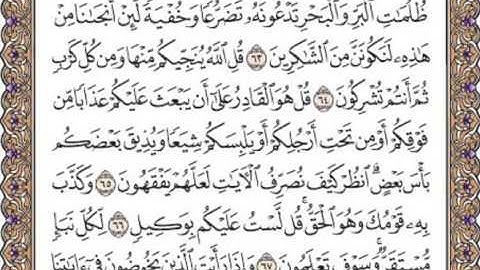 ظُلُمَٰتِ ٱلْبَرِّ وَٱلْبَحْرِ تَدْعُونَهُۥ تَضَرُّعًا وَخُفْيَةً لَّئِنْ أَنجَىٰنَا مِنْ
هَٰذِهِۦ لَنَكُونَنَّ مِنَ ٱلشَّٰكِرِينَ ٦٣ قُلِ ٱللَّهُ يُنَجِّيكُم مِّنْهَا وَمِن كُلِّ كَرْبٍ
ثُمَّ أَنتُمْ تُشْرِكُونَ ٦٤ قُلْ هُوَ ٱلْقَادِرُ عَلَىٰٓ أَن يَبْعَثَ عَلَيْكُمْ عَذَابًا مِّن
فَوْقِكُمْ أَوْ مِن تَحْتِ أَرْجُلِكُمْ أَوْ يَلْبِسَكُمْ شِيَعًا وَيُذِيقَ بَعْضَكُم
بَأْسَ بَعْضٍ ٱنظُرْ كَيْفَ نُصَرِّفُ ٱلْءَايَٰتِ لَعَلَّهُمْ يَفْقَهُونَ ٦٥ وَكَذَّبَ
بِهِۦ قَوْمُكَ وَهُوَ ٱلْحَقُّ قُل لَّسْتُ عَلَيْكُم بِوَكِيلٍ ٦٦ لِّكُلِّ نَبَإٍ
مُّسْتَقَرٌّ وَسَوْفَ تَعْلَمُونَ ٦٧ وَإِذَا رَأَيْتَ ٱلَّذِينَ يَخُوضُونَ فِىٓ ءَايَٰتِنَا